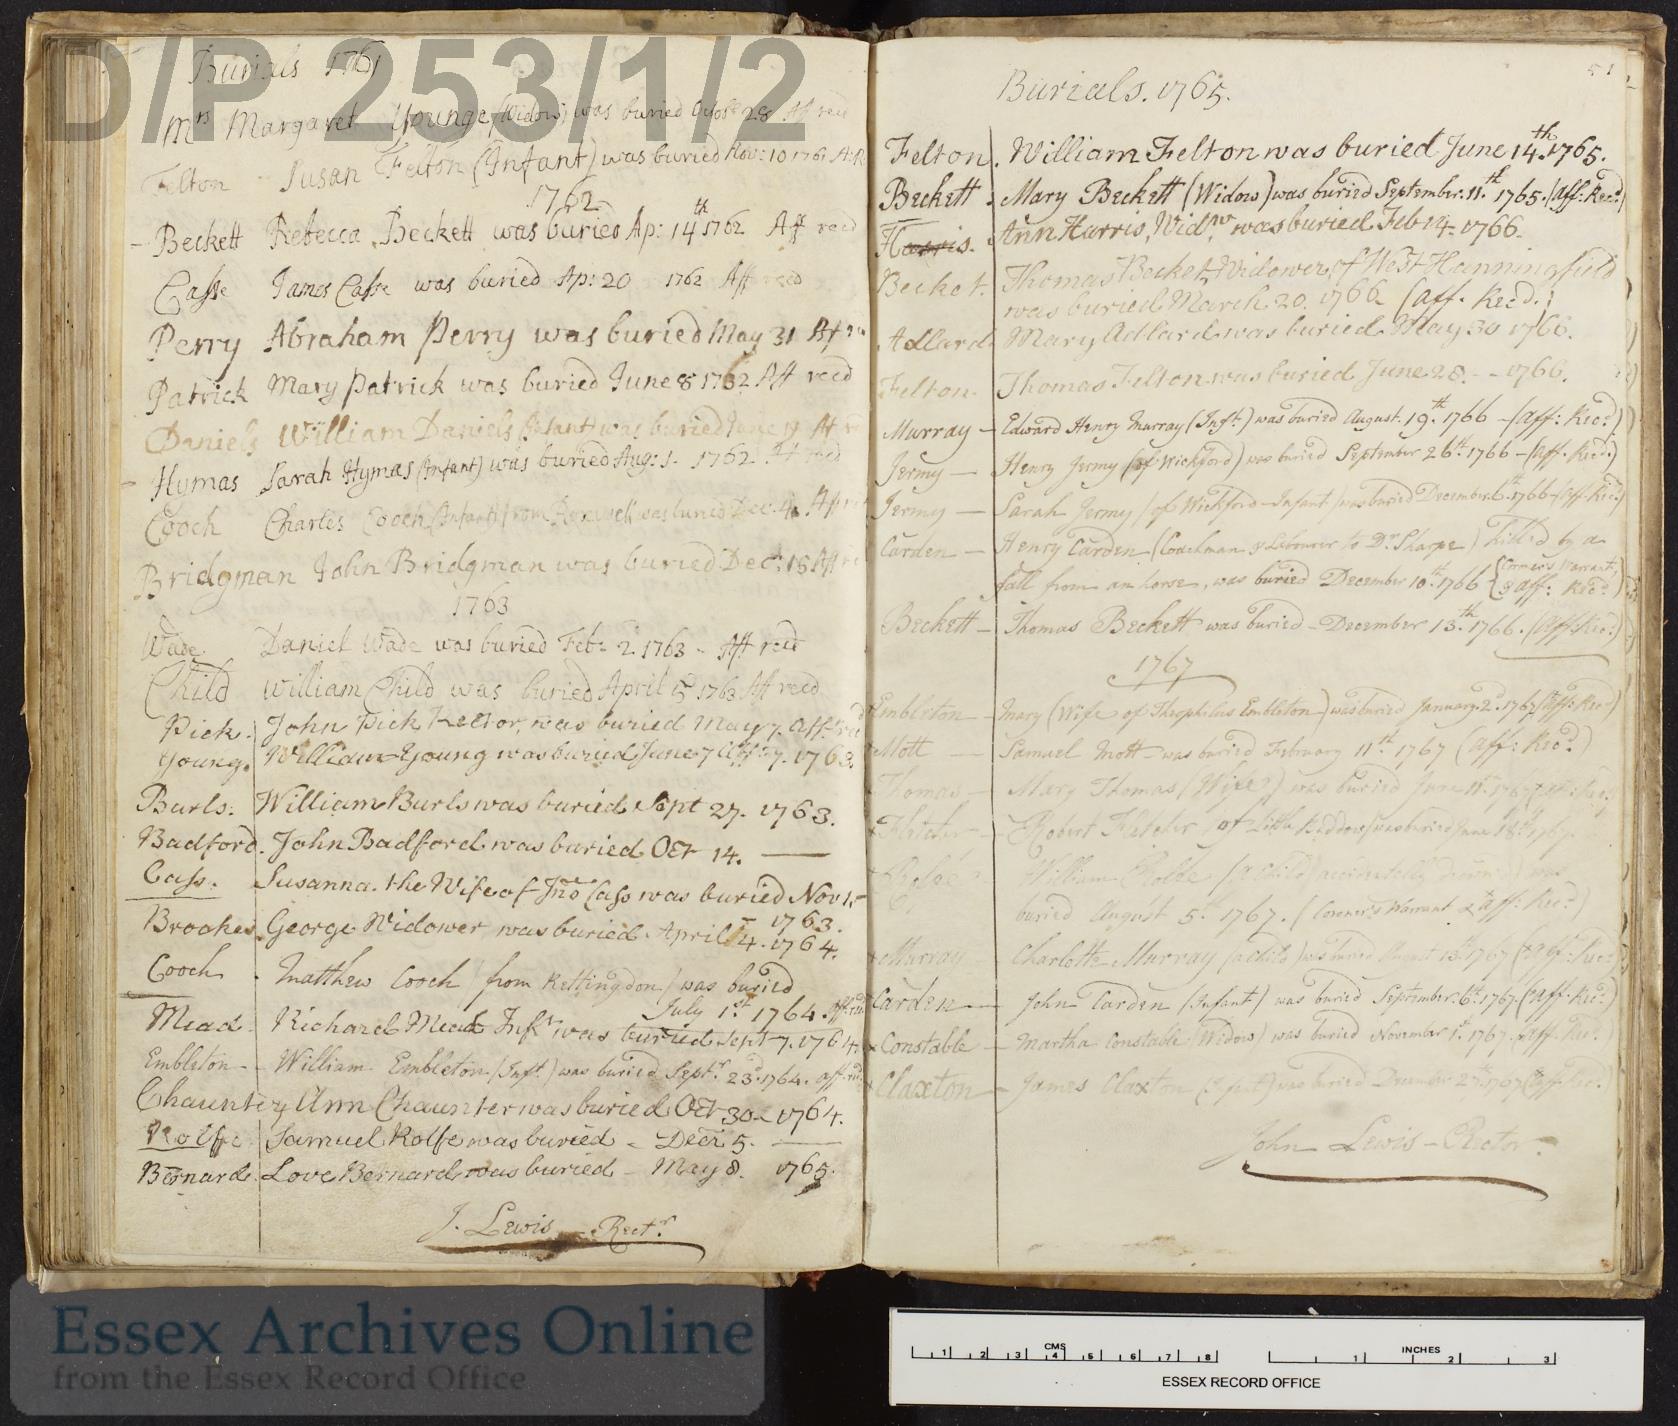 D/P 253/1/2
Burials 1761
Mrs Margaret Younge (Widow) was buried Octobr 28 Aff recd
Felton Susan Felton (Infant) was buried Nov: 10 1761 A:R
1762
Beckett Rebecca Beckett was buried Ap: 14th 1762 Aff recd
Casse James Casse was buried Ap: 20 1762 Aff recd
Perry Abraham Perry was buried May 31 Af re
Patrick Mary Patrick was buried June 8 1762 Aff recd
Daniels William Daniels (Infant) was buried June Af re
Hymas Sarah Hymas (Infant) was buried Aug: 1. 1762 Af recd
Cooch Charles Cooch (Infant) from was buried Dec: 4. Af re
Bridgman John Bridgman was buried Dec: 15 Aff re
1763
Wade Daniel Wade was buried Feb: 2 1763 - Aff recd
Child William Child was buried April 5 1763 Aff recd
Pick. John Pick Rector, was buried May 7. Aff: recd
Young. William Young was buried June 7 1763.
Burls. William Burls was buried Sept 27. 1763.
Badford. John Badford was buried Oct 14.
Cass. Susanna the Wife of Jno Cass was buried Nov 1
1763.
Brookes. George Widower was buried April 4. 1764.
Cooch. Matthew Cooch (from Rettingdon) was buried
July 1st 1764. Aff: recd
Mead. Richard Mead Inft was buried Sept 7. 1764.
Embleton - William Embleton (Inft) was buried Septr 23d 1764. aff: rec
Chaunter Ann Chaunter was buried Oct 30 - 1764.
Rolfe Samuel Rolfe was buried - Decr 5.
Bernard. Love Bernard was buried - May 8. 1765.
J. Lewis - Rectr.
51
Burials. 1765.
Felton. William Felton was buried June 14th. 1765.
Beckett. Mary Beckett (Widow) was buried September 11th 1765. (Aff: Recd)
Harris. Ann Harris, Widw was buried Feb 14. 1766.
Becket. Thomas Becket, Widower, of West Hanningfield
was buried March 20. 1766 (aff. Recd.)
Adlard. Mary Adlard was buried May 30 1766.
Felton. Thomas Felton was buried June 28. - - 1766.
Murray - Edward Henry Murray (Inft) was buried August 19th 1766 - (Aff: Recd)
Jermy - Henry Jermy (of Wickford) was buried September 26th 1766 - (Aff. Recd)
Jermy - Sarah Jermy (of Wickford - Infant) was buried December 6th 1766 - (Aff: Recd)
Carden - Henry Carden (Coachman & Labourer to Dr Sharpe) killed by a
fall from an horse, was buried December 10th 1766 {Coroner's Warrant,
& Aff: Recd}
Beckett - Thomas Beckett was buried - December 13th 1766. (Aff: Recd)
1767
Embleton - Mary (Wife of Theophilus Embleton) was buried January 2d 1767 (Aff: Recd)
Mott - Samuel Mott was buried February 11th 1767 (Aff: Recd)
Thomas - Mary Thomas (Wife) was buried June 11th 1767 (Aff: Recd)
Fletcher - Robert Fletcher (of Little Baddow) was buried June 18th 1767
William Rolfe (a Child) accidentally drown'd was
buried August 5th 1767. (Coroner's Warrant & Aff: Recd)
Murray - Charlotte Murray (a Child) was buried August 13th 1767 (Aff: Recd)
Carden - John Carden (Infant) was buried September 6th 1767 (Aff: Recd)
Constable - Martha Constable (Widow) was buried November 1st 1767. (Aff: Recd)
Claxton - James Claxton (Infant) was buried December 27th 1767 (Aff: Recd)
John Lewis - Rector.
Essex Archives Online
from the Essex Record Office
CMS
1 2 3 4 5 6 7 8
INCHES
1 2 3
ESSEX RECORD OFFICE